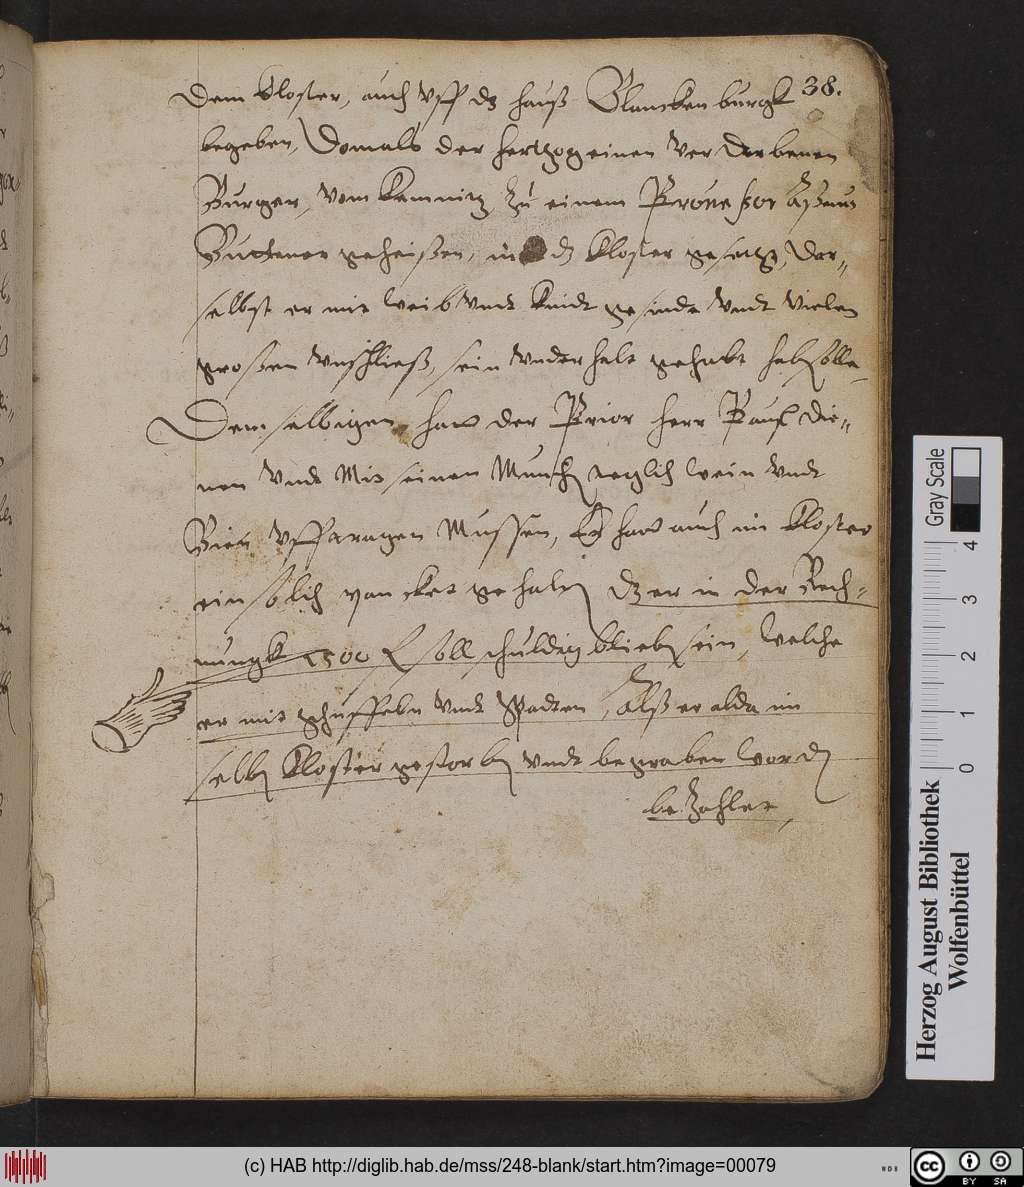 38.
Dem Kloster, auch vff dz hauß Blanckenburgk
begeben, Domals der hertzog einen verdorbenen
Burger, vom Kemnitz zu einem
geheißen, in dz Kloster gesetzt, Der„
selbst er mit weib vndt Kindt gesinde vndt vielen
großen vnschließ, sein vnderhalt gehabt
Demselbigen hatt der Prior herr Paul die„
nen vndt Mit seinen Munchen teglich wein vndt
Bier vfftragen Mussen, Er hatt auch im Kloster
ein solich pancket gehalten dz er in der Rech„
nungk 1500 fl soll schuldig blieben sein, welche
er mit schuffeln vndt Spadten, Alß er alda im
selben Kloster gestorben vndt begraben worden
bezahlet,
Gray Scale
0 1 2 3 4
Herzog August Bibliothek
Wolfenbüttel
(c) HAB http://diglib.hab.de/mss/248-blank/start.htm?image=00079
WDB
cc BY SA